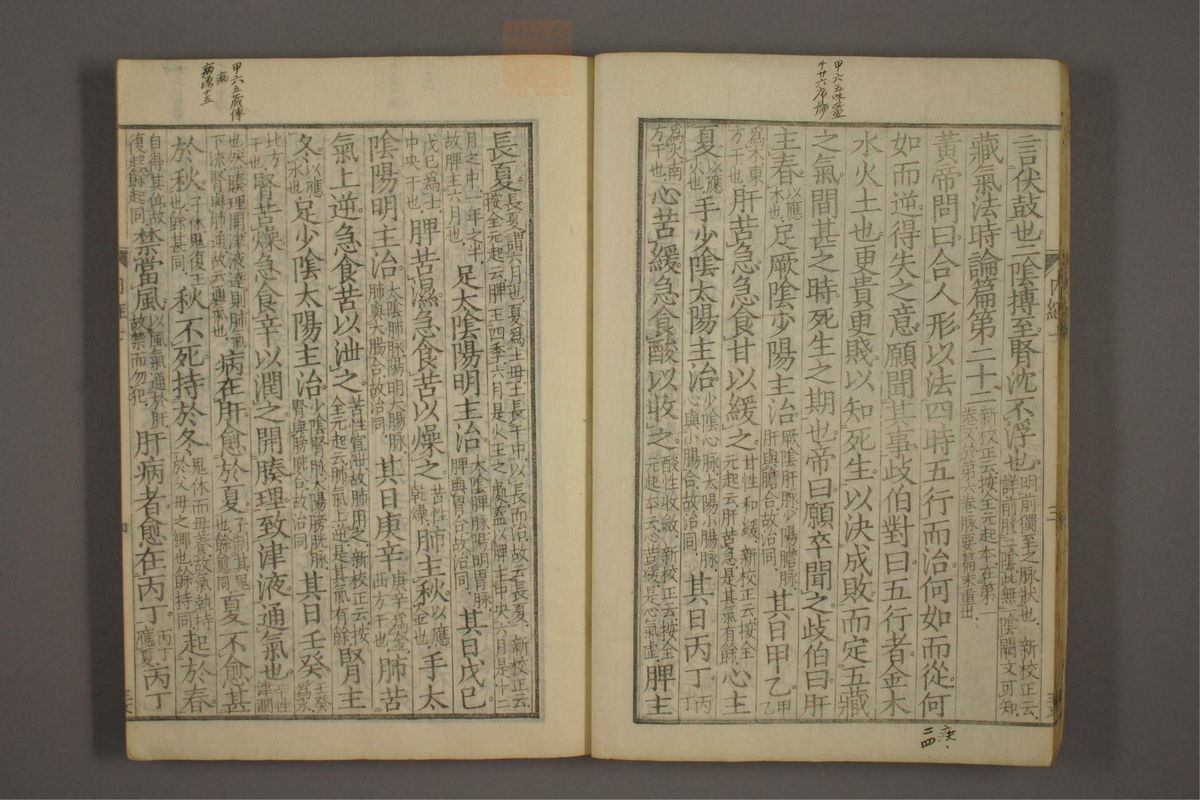 甲六五味𠫵
言伏鼓也二陰搏至腎沈不浮也明前獨至之脉狀也新校正云詳前脱二陰此無一陰闕文可知
藏氣法時論篇第二十二新校正云按全元起本在第一卷又於第六卷脉要篇末重出
黃帝問曰合人形以法四時五行而治何如而從何
如而逆得失之意願聞其事歧伯對曰五行者金木
水火土也更貴更賤以知死生以決成敗而定五藏
之氣間甚之時死生之期也帝曰願卒聞之歧伯曰肝
主春以應木也足厥陰少陽主治厥陰肝脉少陽膽脉肝與膽合故治同其日甲乙甲乙
為木東方干也肝苦急急食甘以緩之甘性和緩新校正云按全元起云肝苦急是其氣有餘心主
夏以應火也手少陰太陽主治少陰心脉太陽小腸脉心與小腸合故治同其日丙丁丙丁
為火南方干也心苦緩急食酸以收之酸性收斂新校正云按全元起本云心苦緩是心氣虛脾主
甲六五藏傳
病
長夏長夏謂六月也夏為土母土長于中以長而治故云長夏新校正云按全元起云脾王四季六月是火王之處蓋以脾主中央六月是十二
月之中一年之半故脾主六月也足太陰陽明主治太陰脾脉陽明胃脉脾與胃合故治同其日戊己
戊己為土中央干也脾苦濕急食苦以燥之苦性乾燥肺主秋以應金也手太
陰陽明主治太陰肺脉陽明大腸脉肺與大腸合故治同其日庚辛庚辛為金西方干也肺苦
氣上逆急食苦以泄之苦性宣泄故肺用之新校正云按全元起云肺氣上逆是其氣有餘腎主
冬以應水也足少陰太陽主治少陰腎脉太陽膀胱脉腎與膀胱合故治同其日壬癸壬癸為水
北方干也腎苦燥急食辛以潤之開腠理致津液通氣也辛性津潤
也然腠理開津液達則肺氣下流腎與肺通故云通氣也病在肝愈於夏子制其鬼也餘愈同夏不愈甚
於秋子休鬼復王也餘甚同秋不死持於冬鬼休而母養故氣執持於父母之鄉也餘持同起於春
自得其位故復起餘起同禁當風以風氣通於肝故禁而勿犯肝病者愈在丙丁丙丁應夏丙丁